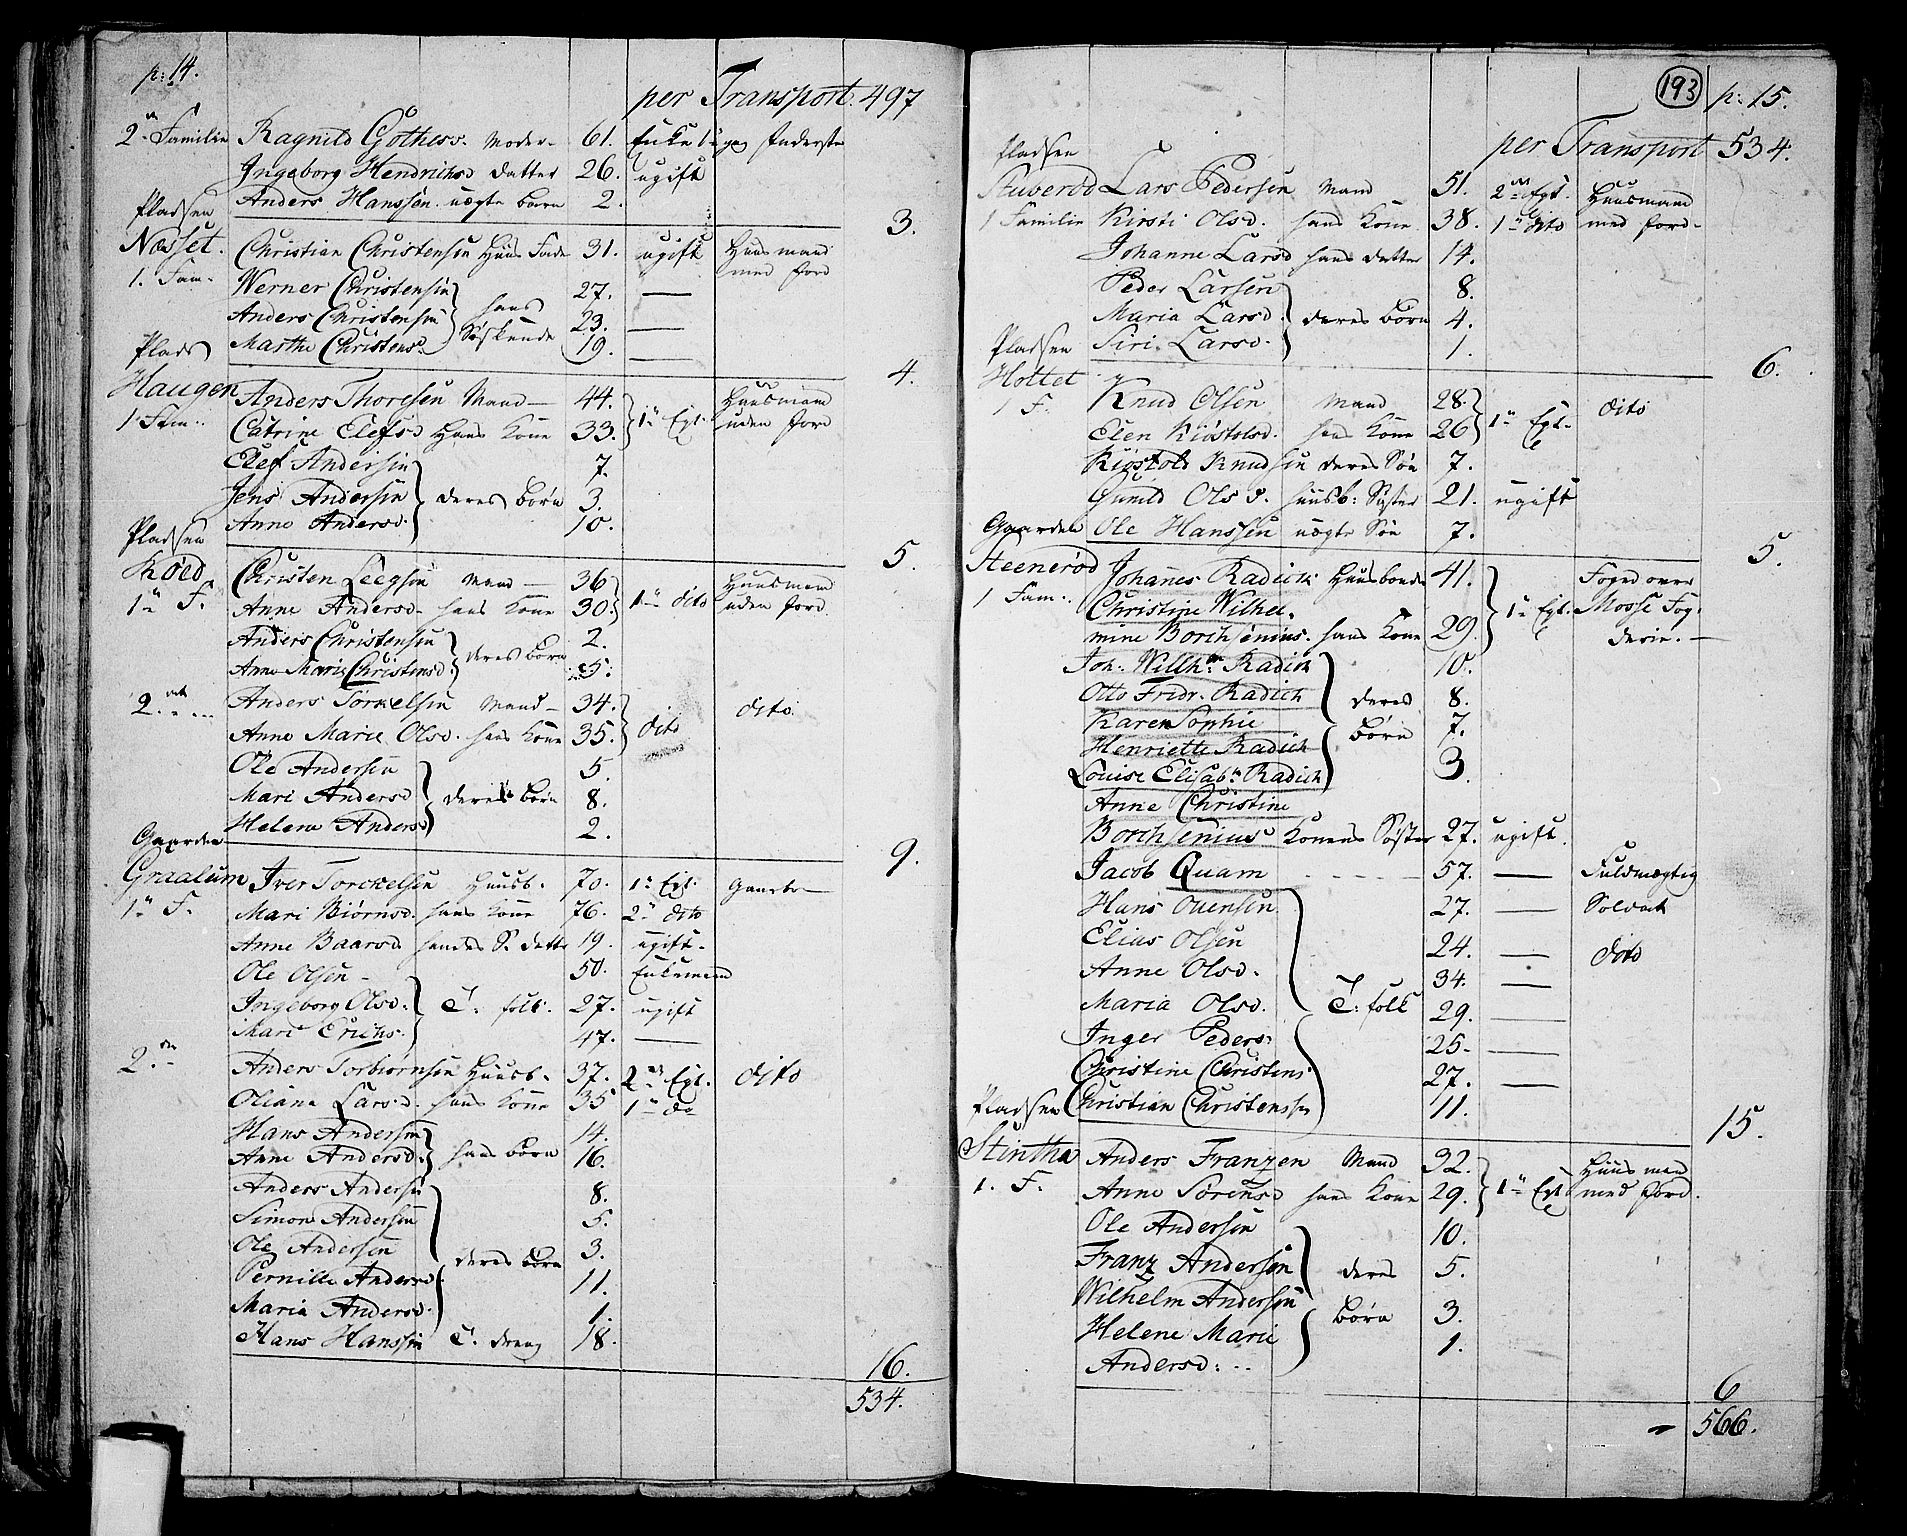 p: 14.
per Transport 497
2n Familie Ragnild Gothesd. Moder 61. Enke 1n og Inderste
Ingeborg Hendrichsd datter 26. ugift
Anders Hanssen uægte barn 2.
3.
Pladsen
Næsset. Christian Christensen Huus Fader 31. ugift Huusmand
1. Fam. med Jord
Werner Christensen 27. —
Anders Christensen hans Søskende 23. —
Marthe Christensd 19. —
4.
Plads
Haugen Anders Thoresen Mand — 44. 1n Egt. Huusmand
1 Fam. Catrine Elefsd Hans Kone 33. uden Jord
Elef Andersen 7.
Jens Andersen deres børn 3.
Anne Andersd. 10.
5.
Pladsen
Kold Christen Leegsen Mand — 36 1n dito Huusmand
1n F. Anne Andersd. hans Kone 30. uden Jord
Anders Christensen 2.
Anne Marie Christensd. deres børn 5.
2den Anders Torkelsen Mand 34. dito dito
Anne Marie Olsd. hans Kone 35.
Ole Andersen 5.
Mari Andersd deres børn 8.
Helene Andersd 2.
9.
Gaarden
Graalum Iver Torckelsen Huusb. 70. 1n Egt. Gaardbr
1n F. Mari Biørnsd. hans Kone 76. 2n dito
Anne Baarsd hendes S. datter 19. ugift
Ole Olsen 50. Enkemand
Ingeborg Olsd. T: folk 27. ugift
Mari Erichs. 47. —
2den Anders Torbiørnsen Huusb. 37. 2det Egt. dito
Oliana Larsd. hans Kone 35 1n do
Hans Andersen 14.
Anne Andersd. hans børn 16.
Anders Andersen 8.
Simon Andersen 5.
Ole Andersen deres børn 3.
Pernille Andersd 11.
Maria Andersd. 1.
Hans Hanssen T. dreng 18.
16.
534.
193
p: 15.
per Transport 534.
Pladsen
Stuverød Lars Pedersen Mand 51. 2det Egt. Huusmand
1 Familie Kirsti Olsd. hans Kone 38. 1n dito med Jord
Johanne Larsd hans datter 14.
Peder Larsen 8.
Maria Larsd. deres børn 4.
Siri Larsd. 1.
6.
Pladsen
Holtet Knud Olsen Mand 28. 1n Egt. dito
1 F. Elen Kiøstolsd. hans Kone 26
Kiøstold Knudsen deres Søn 7.
Gunild Olsd. huusb: Søster 21. ugift
Ole Hanssen uægte Søn 7.
5.
Gaarden
Steenerød Johanes Radich Huusbonde 41. 1n Egt. Foged over
1 Fam. Christine Wilhel- Mosse Fog-
mine Borchsenius. hans Kone 29. derie. —
Joh: Willhm Radich 10.
Otto Fridr. Radich deres 8.
Karen Sophie børn 7.
Henriette Radich
Louise Elisabt: Radich 3.
Anne Christine
Borchsenius Konens Søster 27. ugift.
Jacob Quam 57. — Fuldmægtig
Hans Ovensen 27. — Soldat
Elias Olsen 24. — dito
Anne Olsd. 34. —
Maria Olsd. T: folk 29. —
Inger Peders: 25. —
Christine Christens 27. —
Christian Christenssen 11.
15.
Pladsen
Stintha Anders Franzen Mand 32. 1n Egt Huusmand
1. F. Anne Sørensd hans Kone 29. med Jord.
Ole Andersen 10.
Franz Andersen deres 5.
Wilhelm Andersen børn 3.
Helene Marie 1.
Andersd:
6
566.